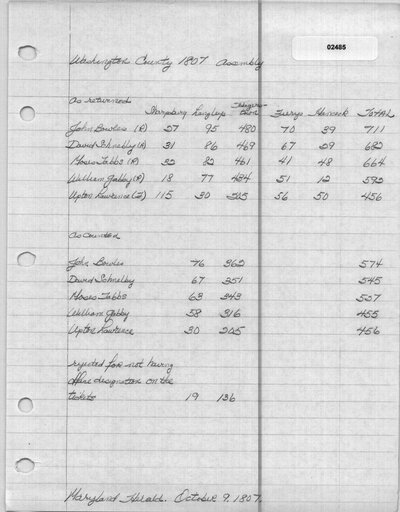 02485
Washington County 1807 Assembly
As returned
Sharpsburg Langleys Hagers-town Furrys Hancock TOTAL
John Bowles (R) 27 95 480 70 39 711
David Schnelby (R) 31 86 469 67 29 682
Moses Tabbs (R) 32 82 461 41 48 664
William Gabby (R) 18 77 434 51 12 592
Upton Lawrence (F) 115 30 205 56 50 456
As counted
John Bowles 76 362 574
David Schnelby 67 351 545
Moses Tabbs 63 343 527
William Gabby 58 316 455
Upton Lawrence 30 205 456
rejected for not having
office designation on the
tickets 19 136
Maryland Herald. October 9, 1807.